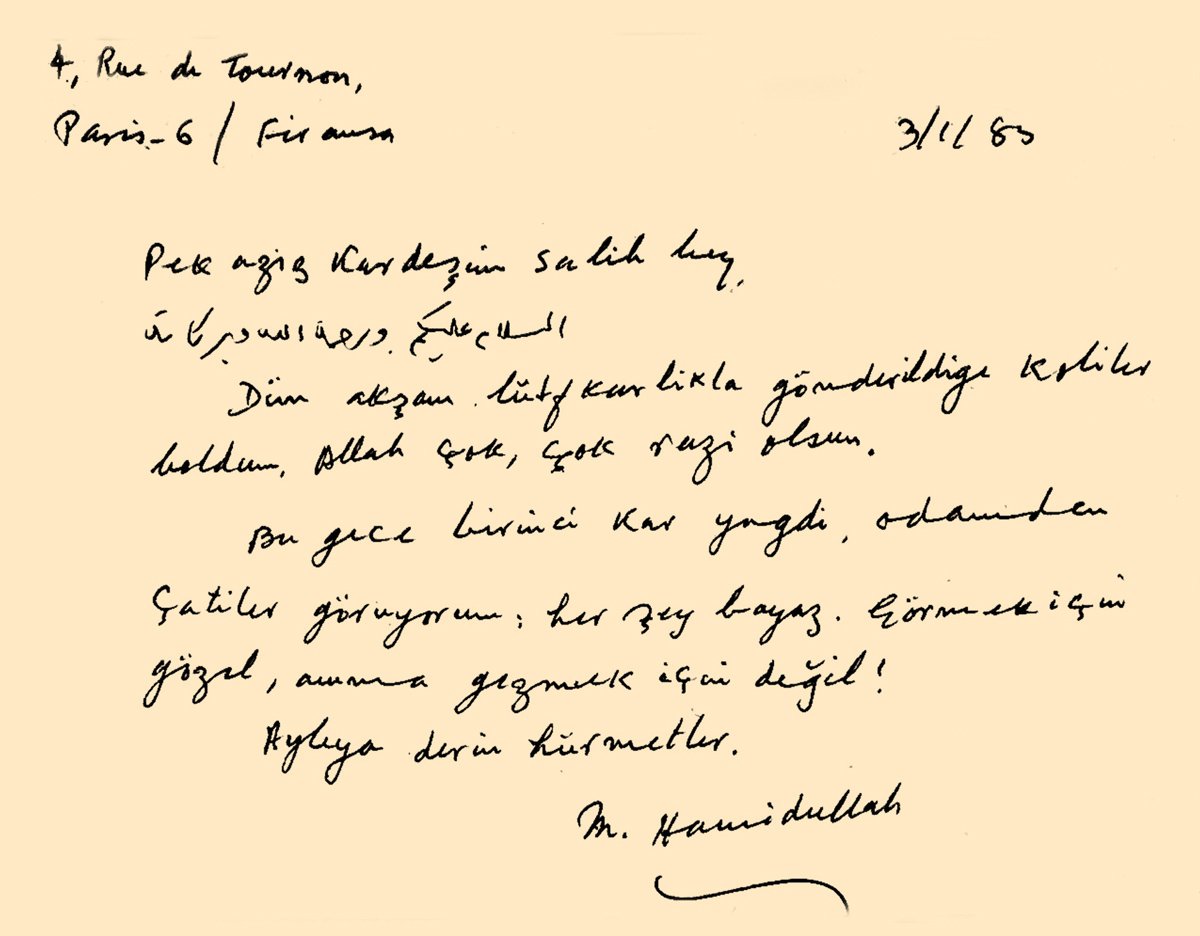 4, Rue de Tournon,
Paris-6 / Firansa
3/1/83
Pek aziz Kardeşim Salih bey,
السلام عليكم ورحمة الله وبركاته
Dün akşam lütfkarlikla gönderildige koliler
boldum. Allah çok, çok razi olsun.
Bu gece birinci kar yagdi, odamdan
Çatiler göruyorum: her şey bayaz. Görmek için
gözel, amma gezmek için değil!
Ayleya derin hürmetler.
M. Hamidullah